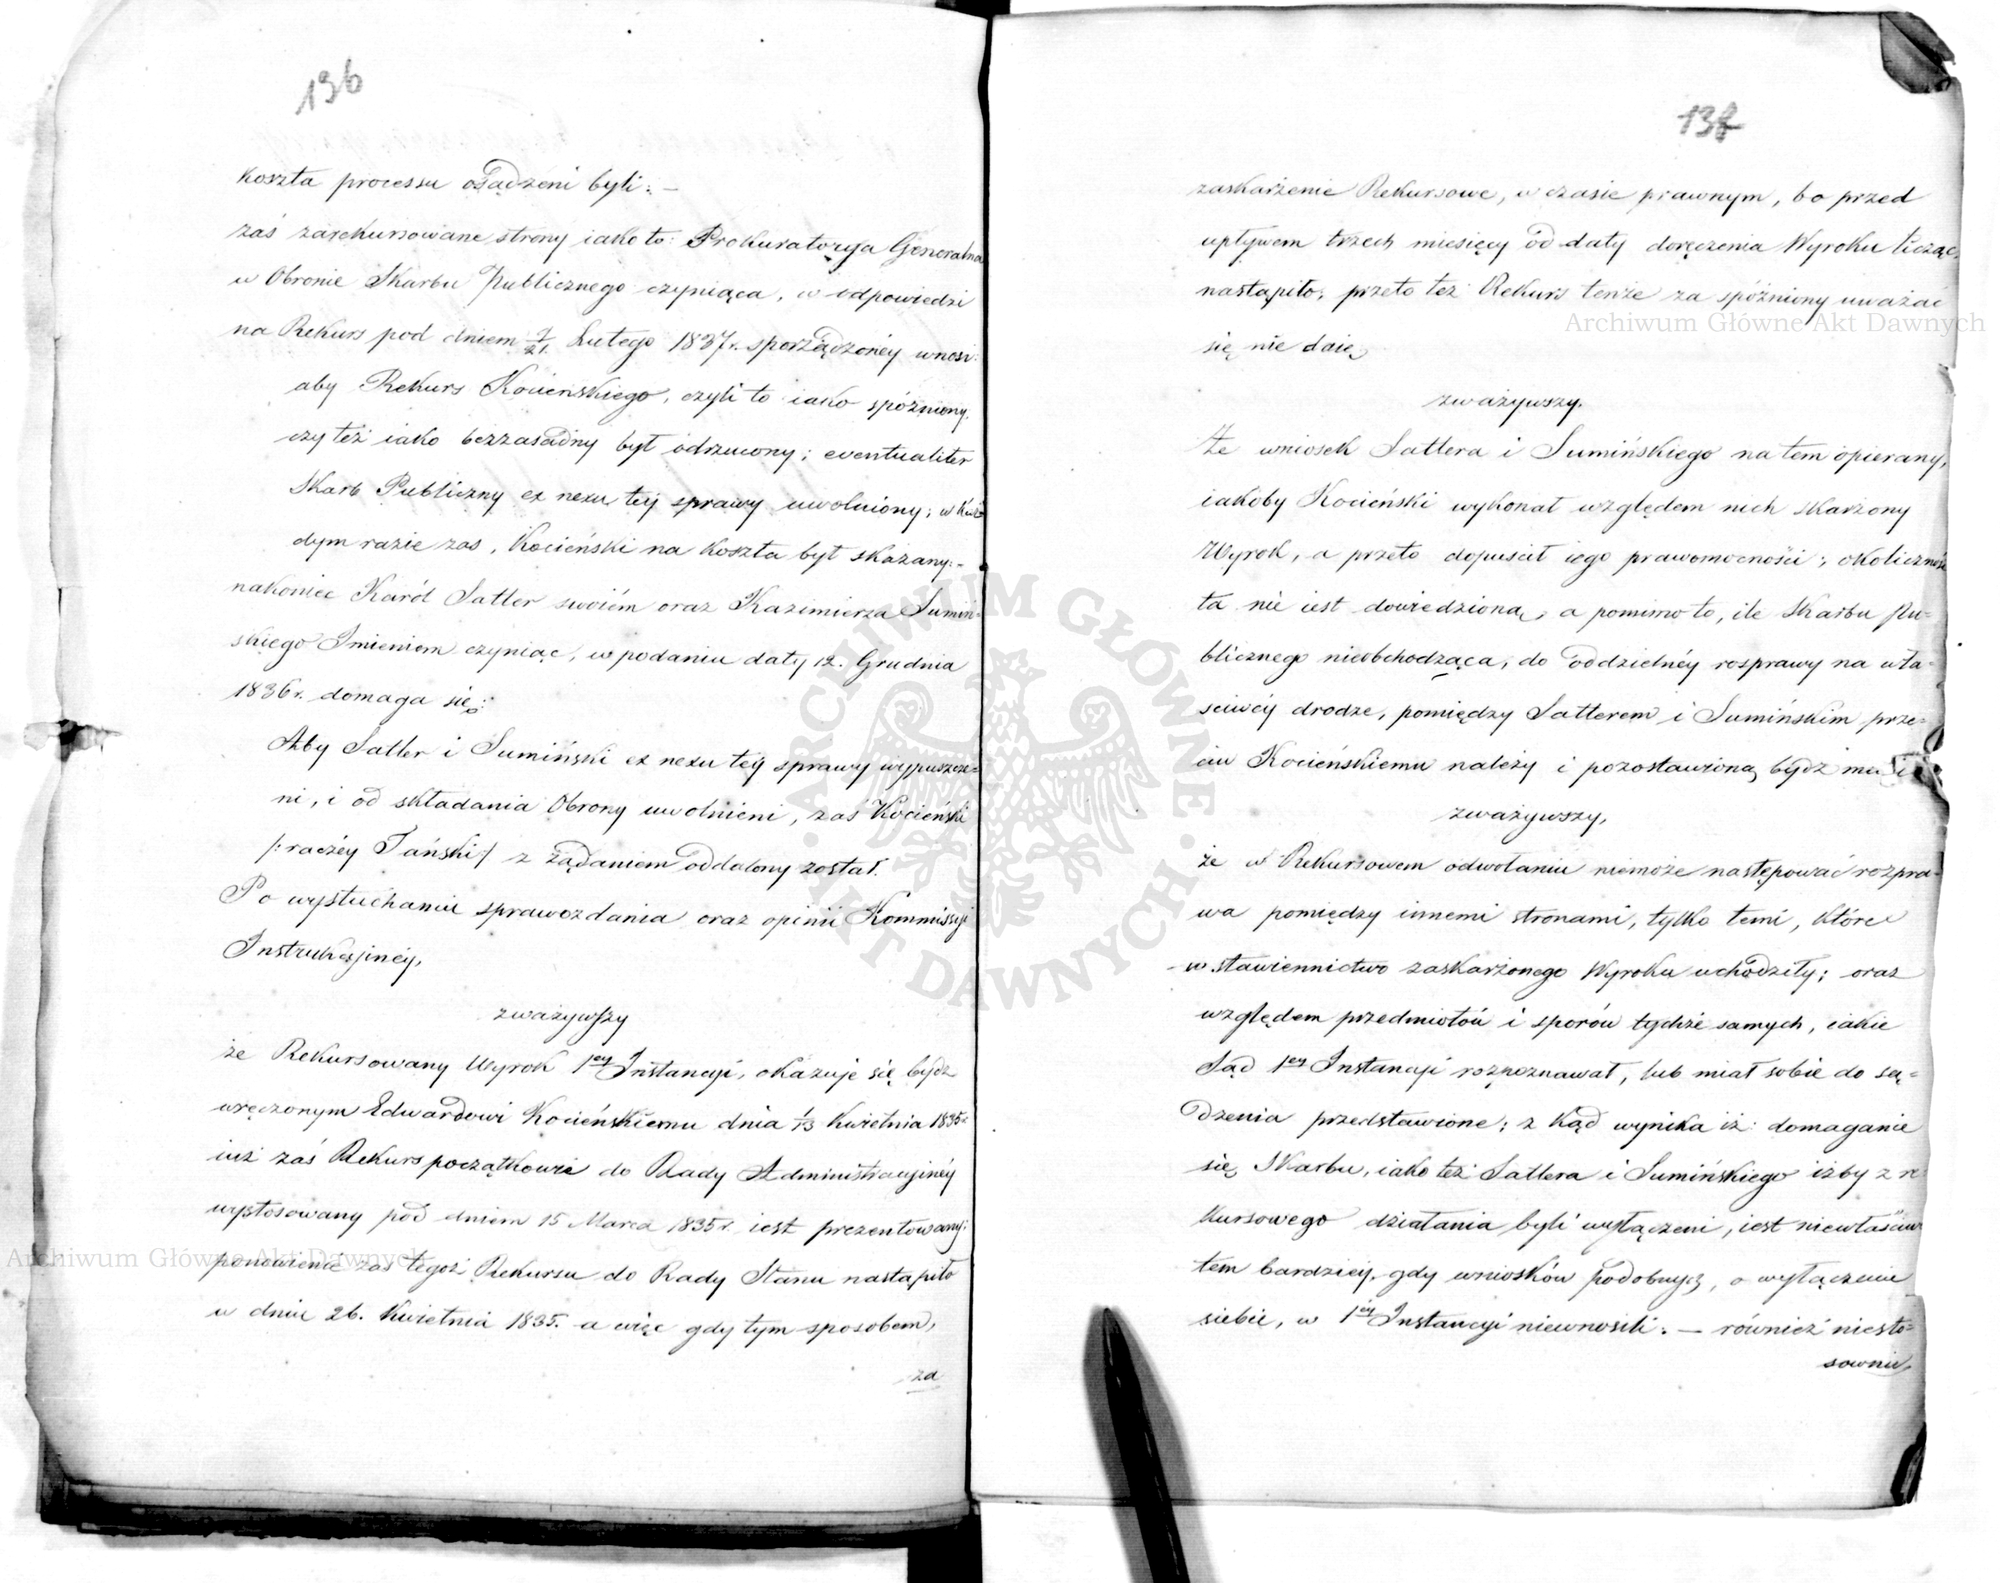 136
koszta processu osądzeni byli: —
zaś zarekursowane strony iako to: Prokuratorya Generalna
w Obronie Skarbu Publicznego czyniąca, w odpowiedzi
na Rekurs pod dniem 9/21. Lutego 1837 r. sporządzonéy wnosi:
aby Rekurs Kocieńskiego, czyli to iako spóźniony,
czy też iako bezzasadny był odrzucony; eventualiter
Skarb Publiczny ex nexu téy sprawy uwolniony; w każ-
dym razie zaś, Kocieński na koszta był skazany:-
nakoniec Karól Satler swoiém oraz Kazimierza Sumiń-
skiego Imieniem czyniąc, w podaniu daty 12. Grudnia
1836 r. domaga się:
Aby Satler i Sumiński ex nexu téy sprawy wypuszcze-
ni, i od składania Obrony uwolnieni, zaś Kocieński
/:raczéy Tański:/ z żądaniem oddalony został.
Po wysłuchaniu sprawozdania oraz opinii Kommissyi
Instrukcyjnéy,
zważywszy
że Rekursowany Wyrok 1ey Instancyi, okazuje się bydź
wręczonym Edwardowi Kocieńskiemu dnia 1/13 Kwietnia 1835 r.
iuż zaś Rekurs początkowie do Rady Administracyjnéy
wystosowany pod dniem 15 Marca 1835 r. iest prezentowany:
ponowienie zaś tegoż Rekursu do Rady Stanu nastąpiło
w dniu 26. Kwietnia 1835. a więc gdy tym sposobem,
za
zaskarżenie Rekursowe, w czasie prawnym, bo przed
upływem trzech miesięcy od daty doręczenia Wyroku licząc,
nastąpiło; przeto też Rekurs tenże za spóźniony uważać
się nie daie,
zważywszy.
że wniosek Satlera i Sumińskiego na tem opierany,
iakoby Kocieński wykonał względem nich skarżony
Wyrok, a przeto dopuścił iego prawomocności; okoliczność
ta nie iest dowiedzioną, a pomimo to, ile Skarbu Pu-
blicznego nieobchodząca, do oddzielnéy rosprawy na wła-
sciwéy drodze, pomiędzy Satlerem i Sumińskim prze-
ciw Kocieńskiemu należy i pozostawioną bydź musi
zważywszy,
że w Rekursowem odwołaniu niemoże następować rozpra-
wa pomiędzy innemi stronami, tylko temi, które
w stawiennictwo zaskarżonego Wyroku uchodziły; oraz
względem przedmiotów i sporów tychże samych, iakie
Sąd 1ey Instancyi rozpoznawał, lub miał sobie do są-
dzenia przedstawione; z kąd wynika iż domaganie
się Skarbu, iako też Satlera i Sumińskiego iżby z re
kursowego działania byli wyłączeni, iest niewłaściw
tem bardziéy, gdy wniosków podobnych, o wyłączenie
siebie, w 1éy Instancyi niewnosili: — również niesto-
sownie,
Archiwum Główne Akt Dawnych
Archiwum Główne Akt Dawnych
ARCHIWUM GŁÓWNE · AKT DAWNYCH ·